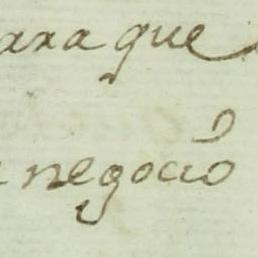 para que
negocio